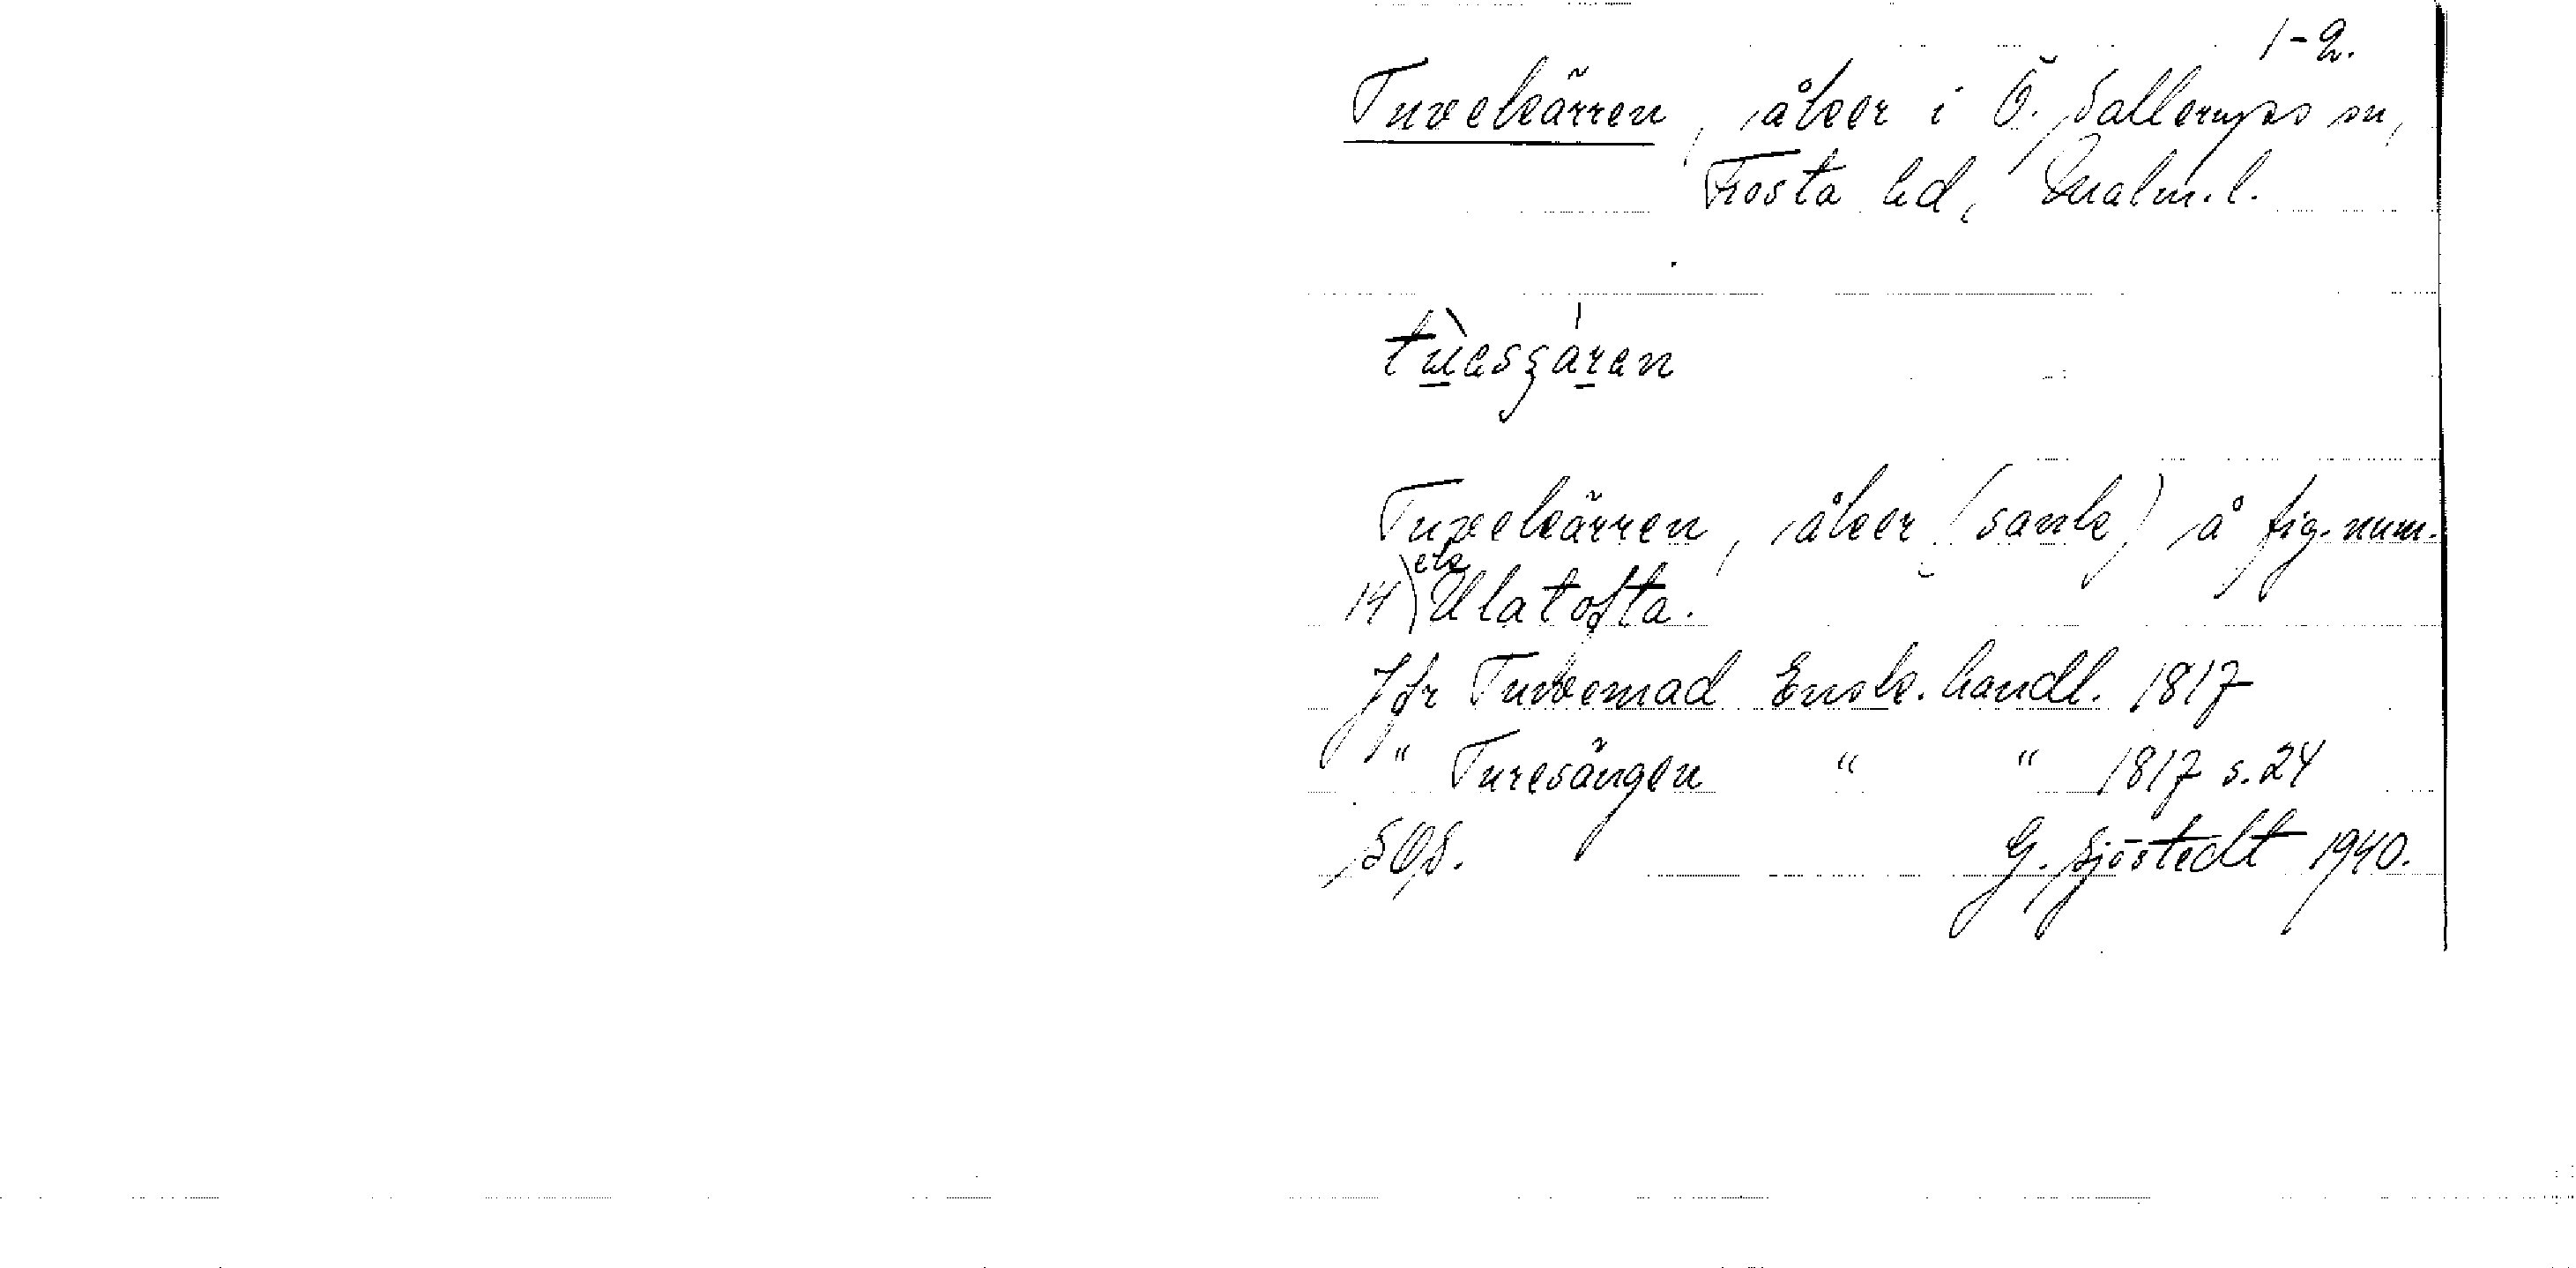 1-2.
Tuvekärren, åker i Ö. Sallerups sn,
Frosta hd, Malm. l.
Tuvekärren, åker (sank) å fig. num.
14) Ulatofta.
Jfr Tuvemad Ensk. handl. 1817
" Turesängen " " 1817 s. 24
SOS. G. Sjöstedt 1940.